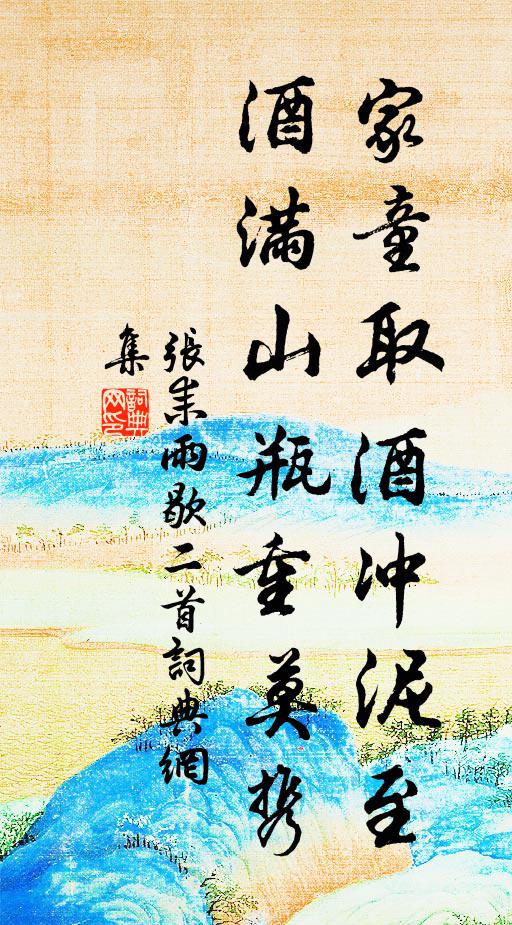 家童取酒冲泥至
酒满山瓶重莫携
張耒雨歇二首詞典網
集
詞典網印